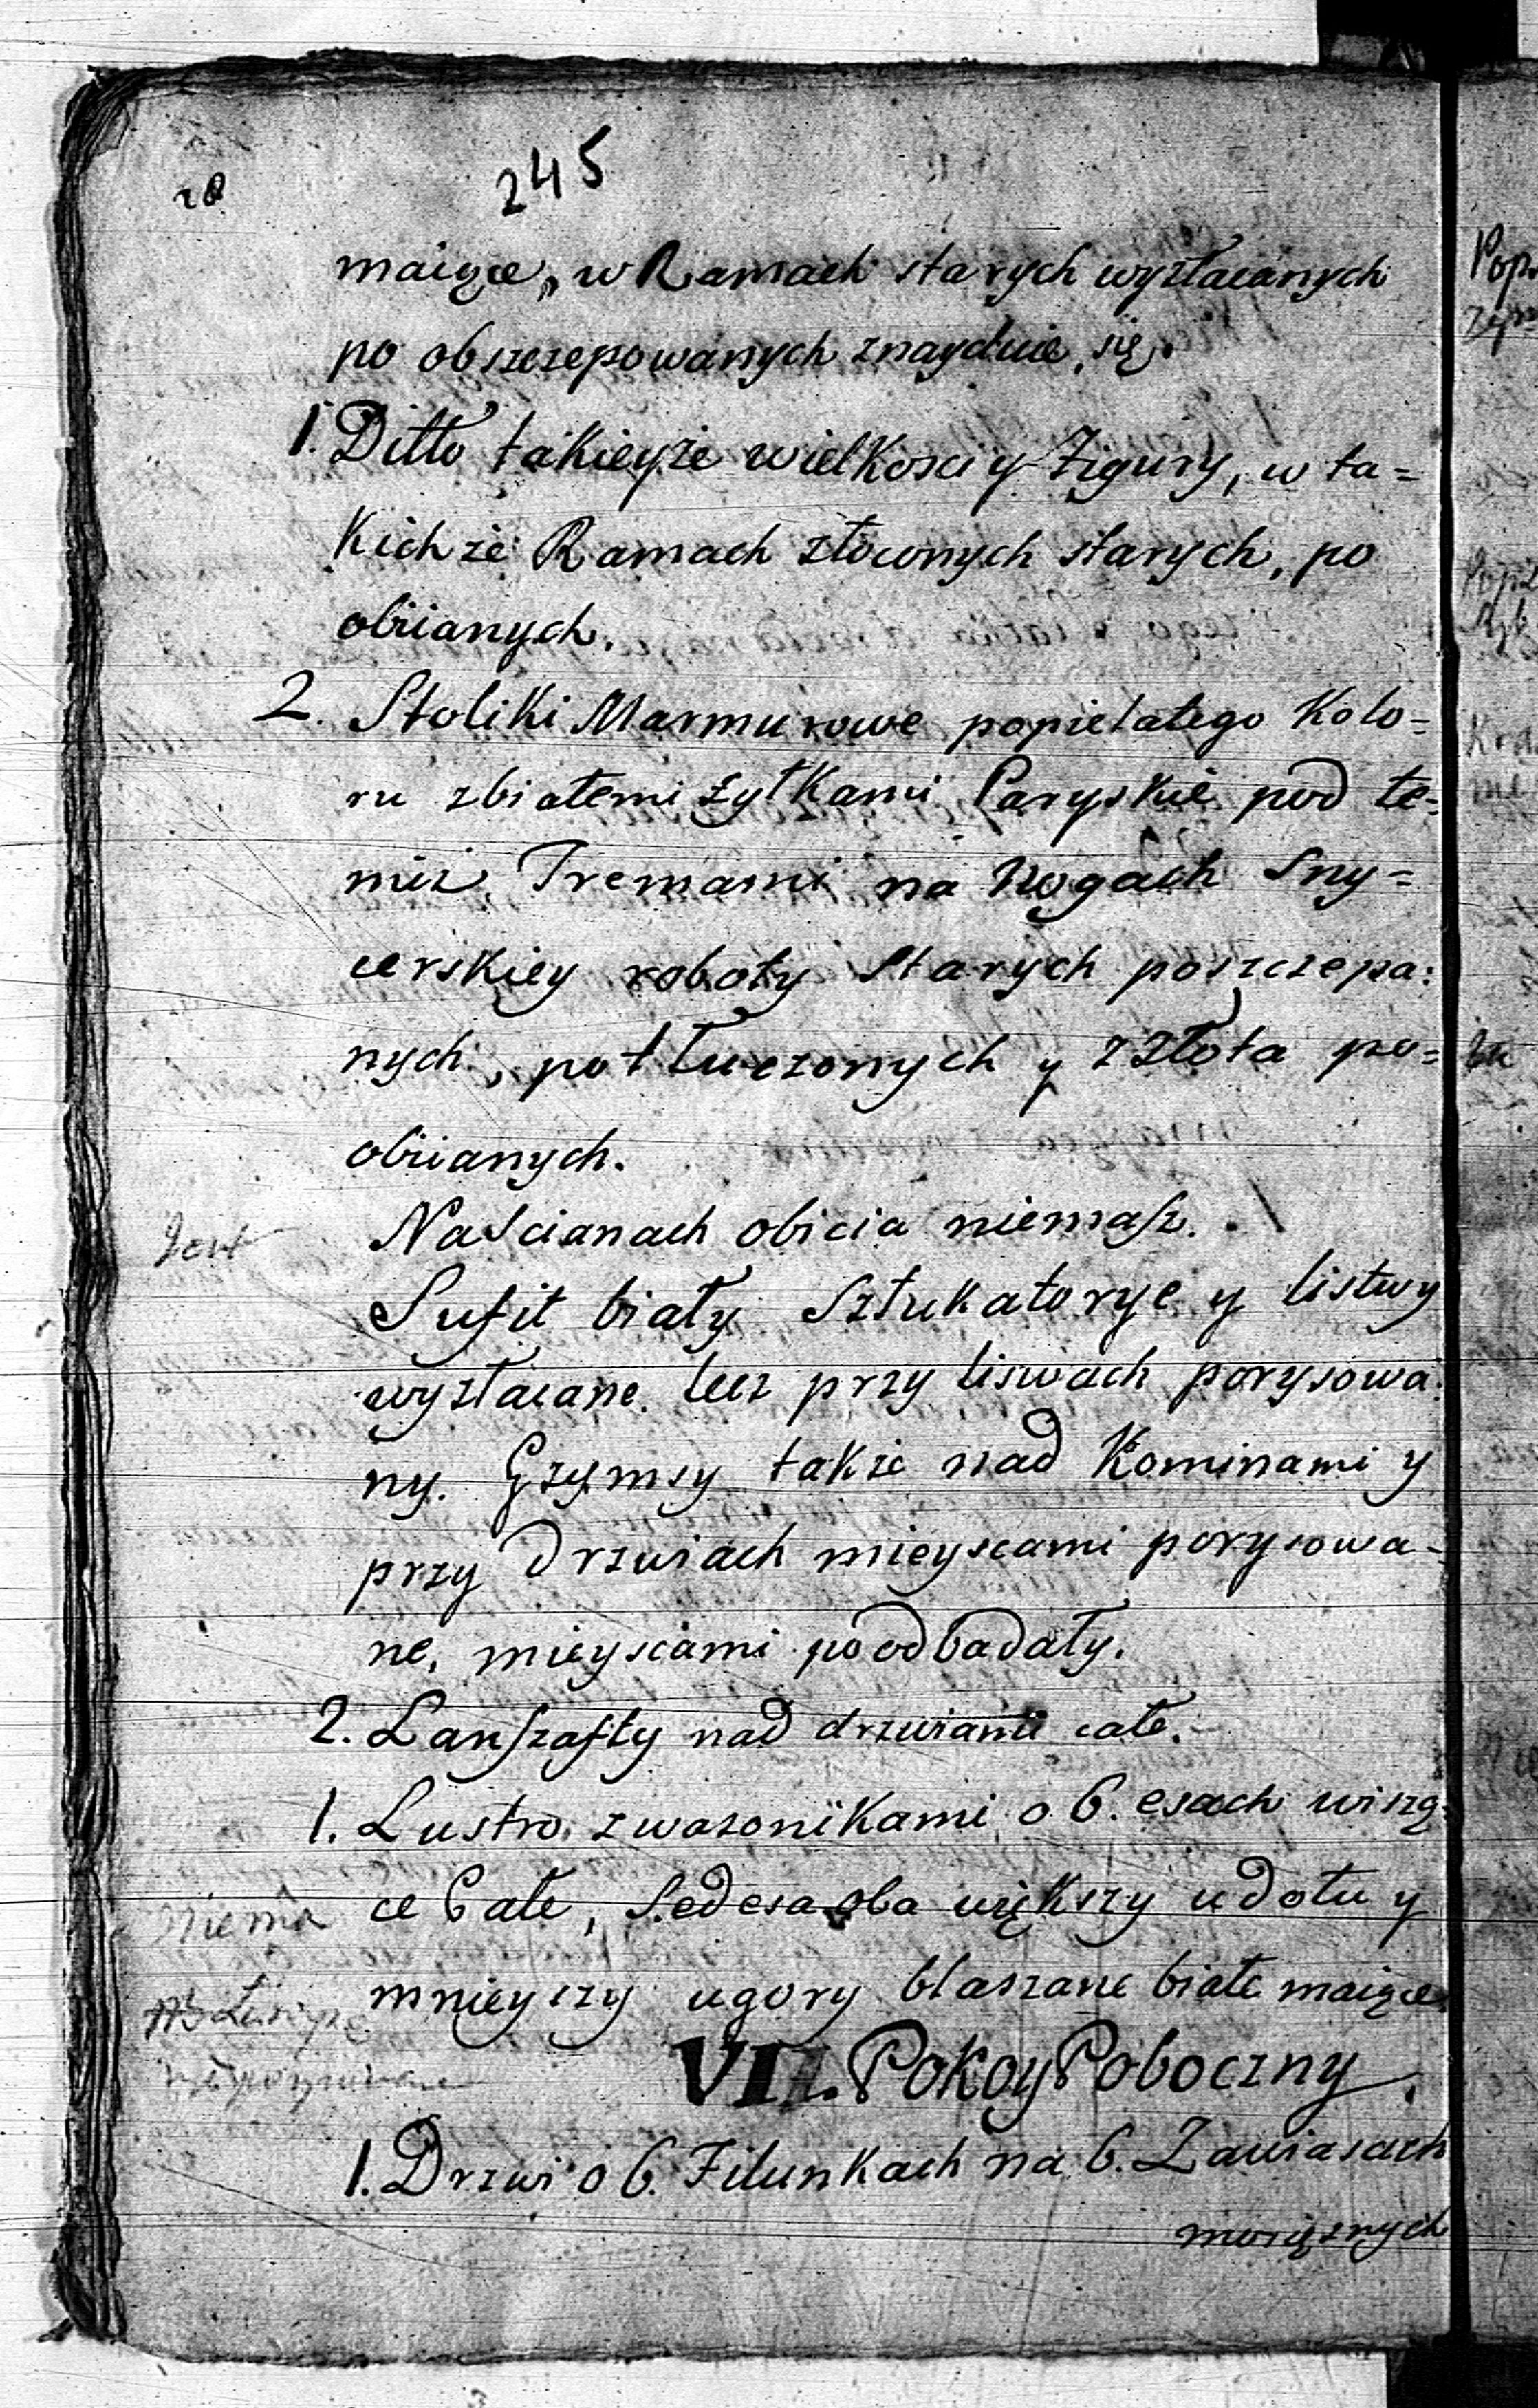 28
245
maiące, w Ramach starych wyzłacanych
po obszczepowanych znayduie się.
1. Ditto takieyże wielkosci y Figury, w ta=
kichże Ramach złoconych starych, po
obiianych.
2. Stoliki Marmurowe popielatego Kolo=
ru z białemi żyłkami Paryskie pod te=
miż Tremami na Nogach Sny=
cerskiey roboty Starych poszczepa:
nych, potłuczonych y z Złota po=
obiianych.
Jest
Na Scianach obicia niemasz.
Sufit biały Sztukatorye y listwy
wyzłacane lecz przy liswach porysowa:
ny. Gzymsy także nad Kominami y
przy Drzwiach mieyscami porysowa=
ne, mieyscami poodbadały.
2. Lanszafty nad drzwiami całe.
1. Lustro z wazonikami o 6. esach wiszą=
Niema
ce Całe, Sed esa oba większy u dołu y
mnieyszy u gory blaszane białe maiące
VII. Pokoy Poboczny.
1. Drzwi o 6. Filunkach na 6. Zawiasach
mosiężnych